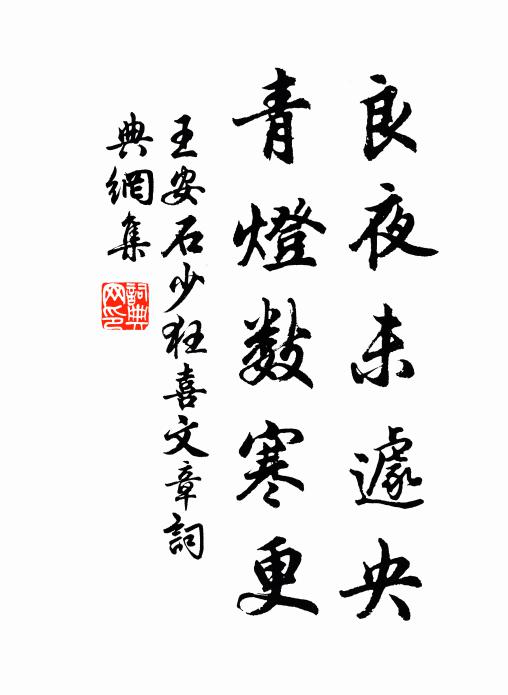 良夜未遽央
青燈数寒更
王安石少狂喜文章詞
典網集
詞典网印